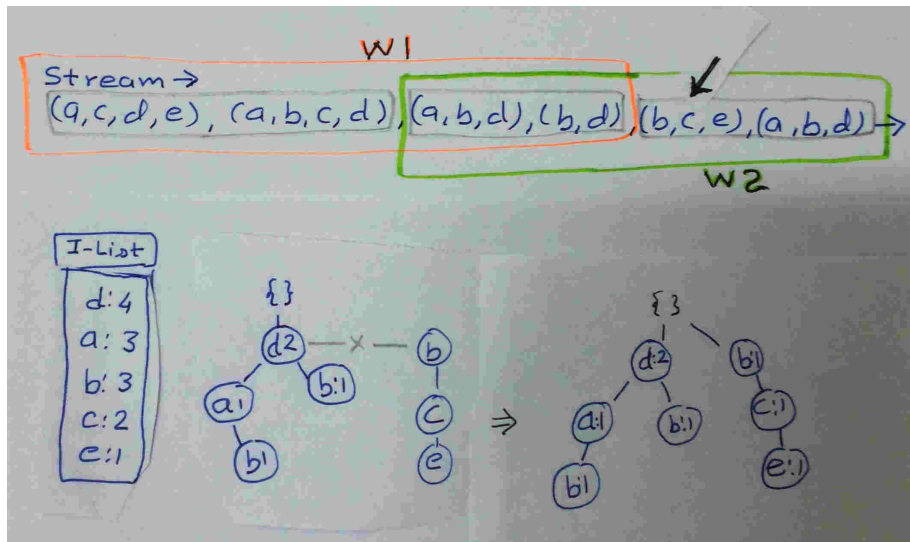 W1
Stream →
(a,c,d,e), (a,b,c,d), (a,b,d), (b,d), (b,c,e), (a,b,d) →
W2
I-List
d:4
a:3
b:3
c:2
e:1
{}
d2
b
a1
b:1
c
b1
e
⇒
{}
d:2
b:1
a:1
b:1
c:1
b:1
e:1